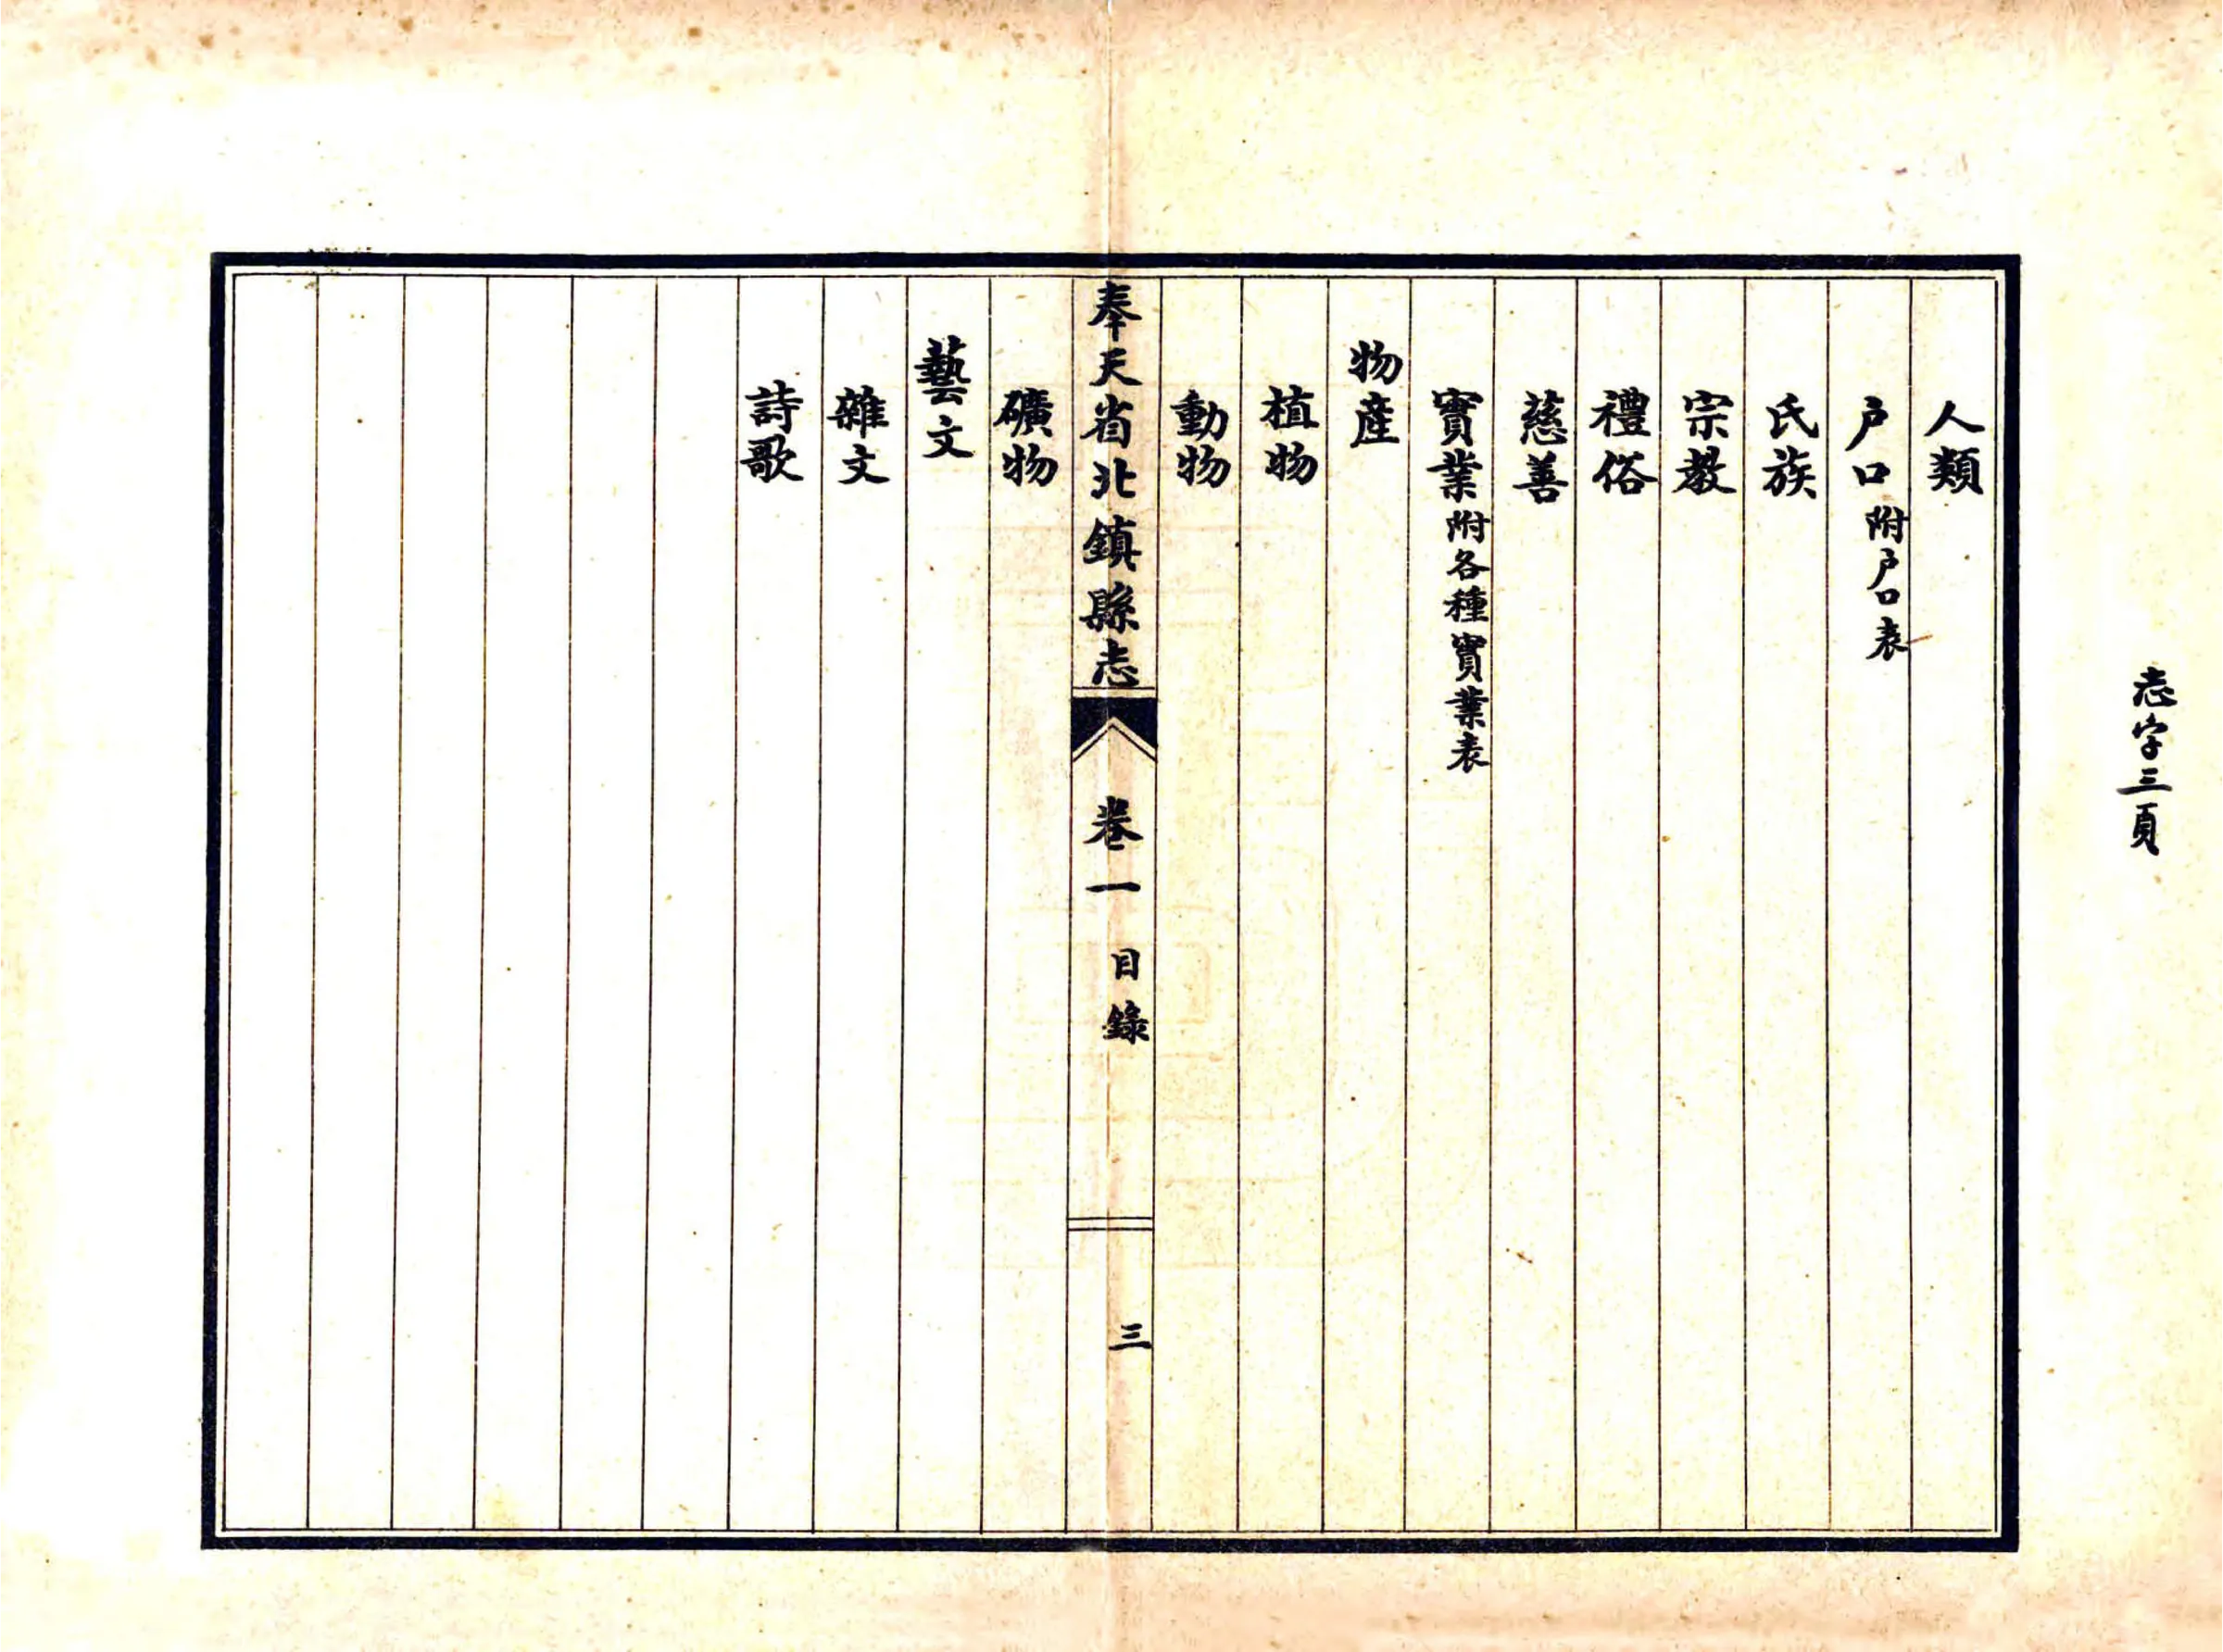 志字三頁
人類
户口附户口表
氏族
宗教
禮俗
慈善
實業附各種實業表
物產
植物
動物
奉天省北鎮縣志 卷一 目錄 三
礦物
藝文
雜文
詩歌